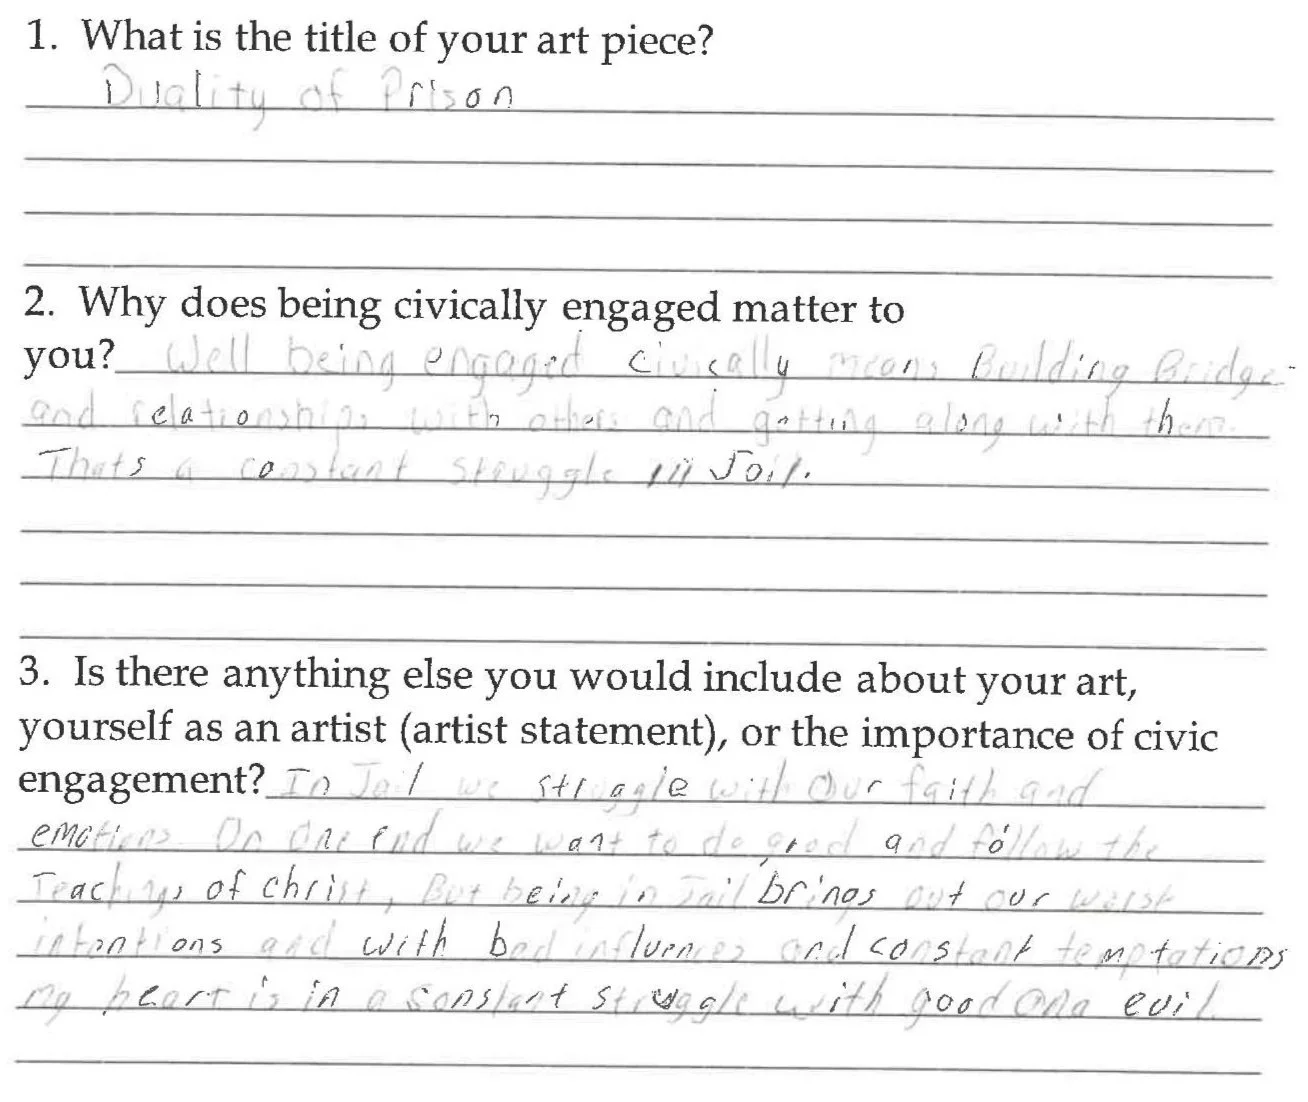 1. What is the title of your art piece?
Duality of Prison
2. Why does being civically engaged matter to
you? Well being engaged civically means Building Bridges
and relationships with others and getting along with them.
Thats a constant struggle in Jail.
3. Is there anything else you would include about your art,
yourself as an artist (artist statement), or the importance of civic
engagement? In Jail we struggle with Our faith and
emotions. On One End we want to do good and follow the
Teachings of christ, But being in Jail brings out our worst
intentions and with bad influences and constant temptations
my heart is in a constant struggle with good and evil.